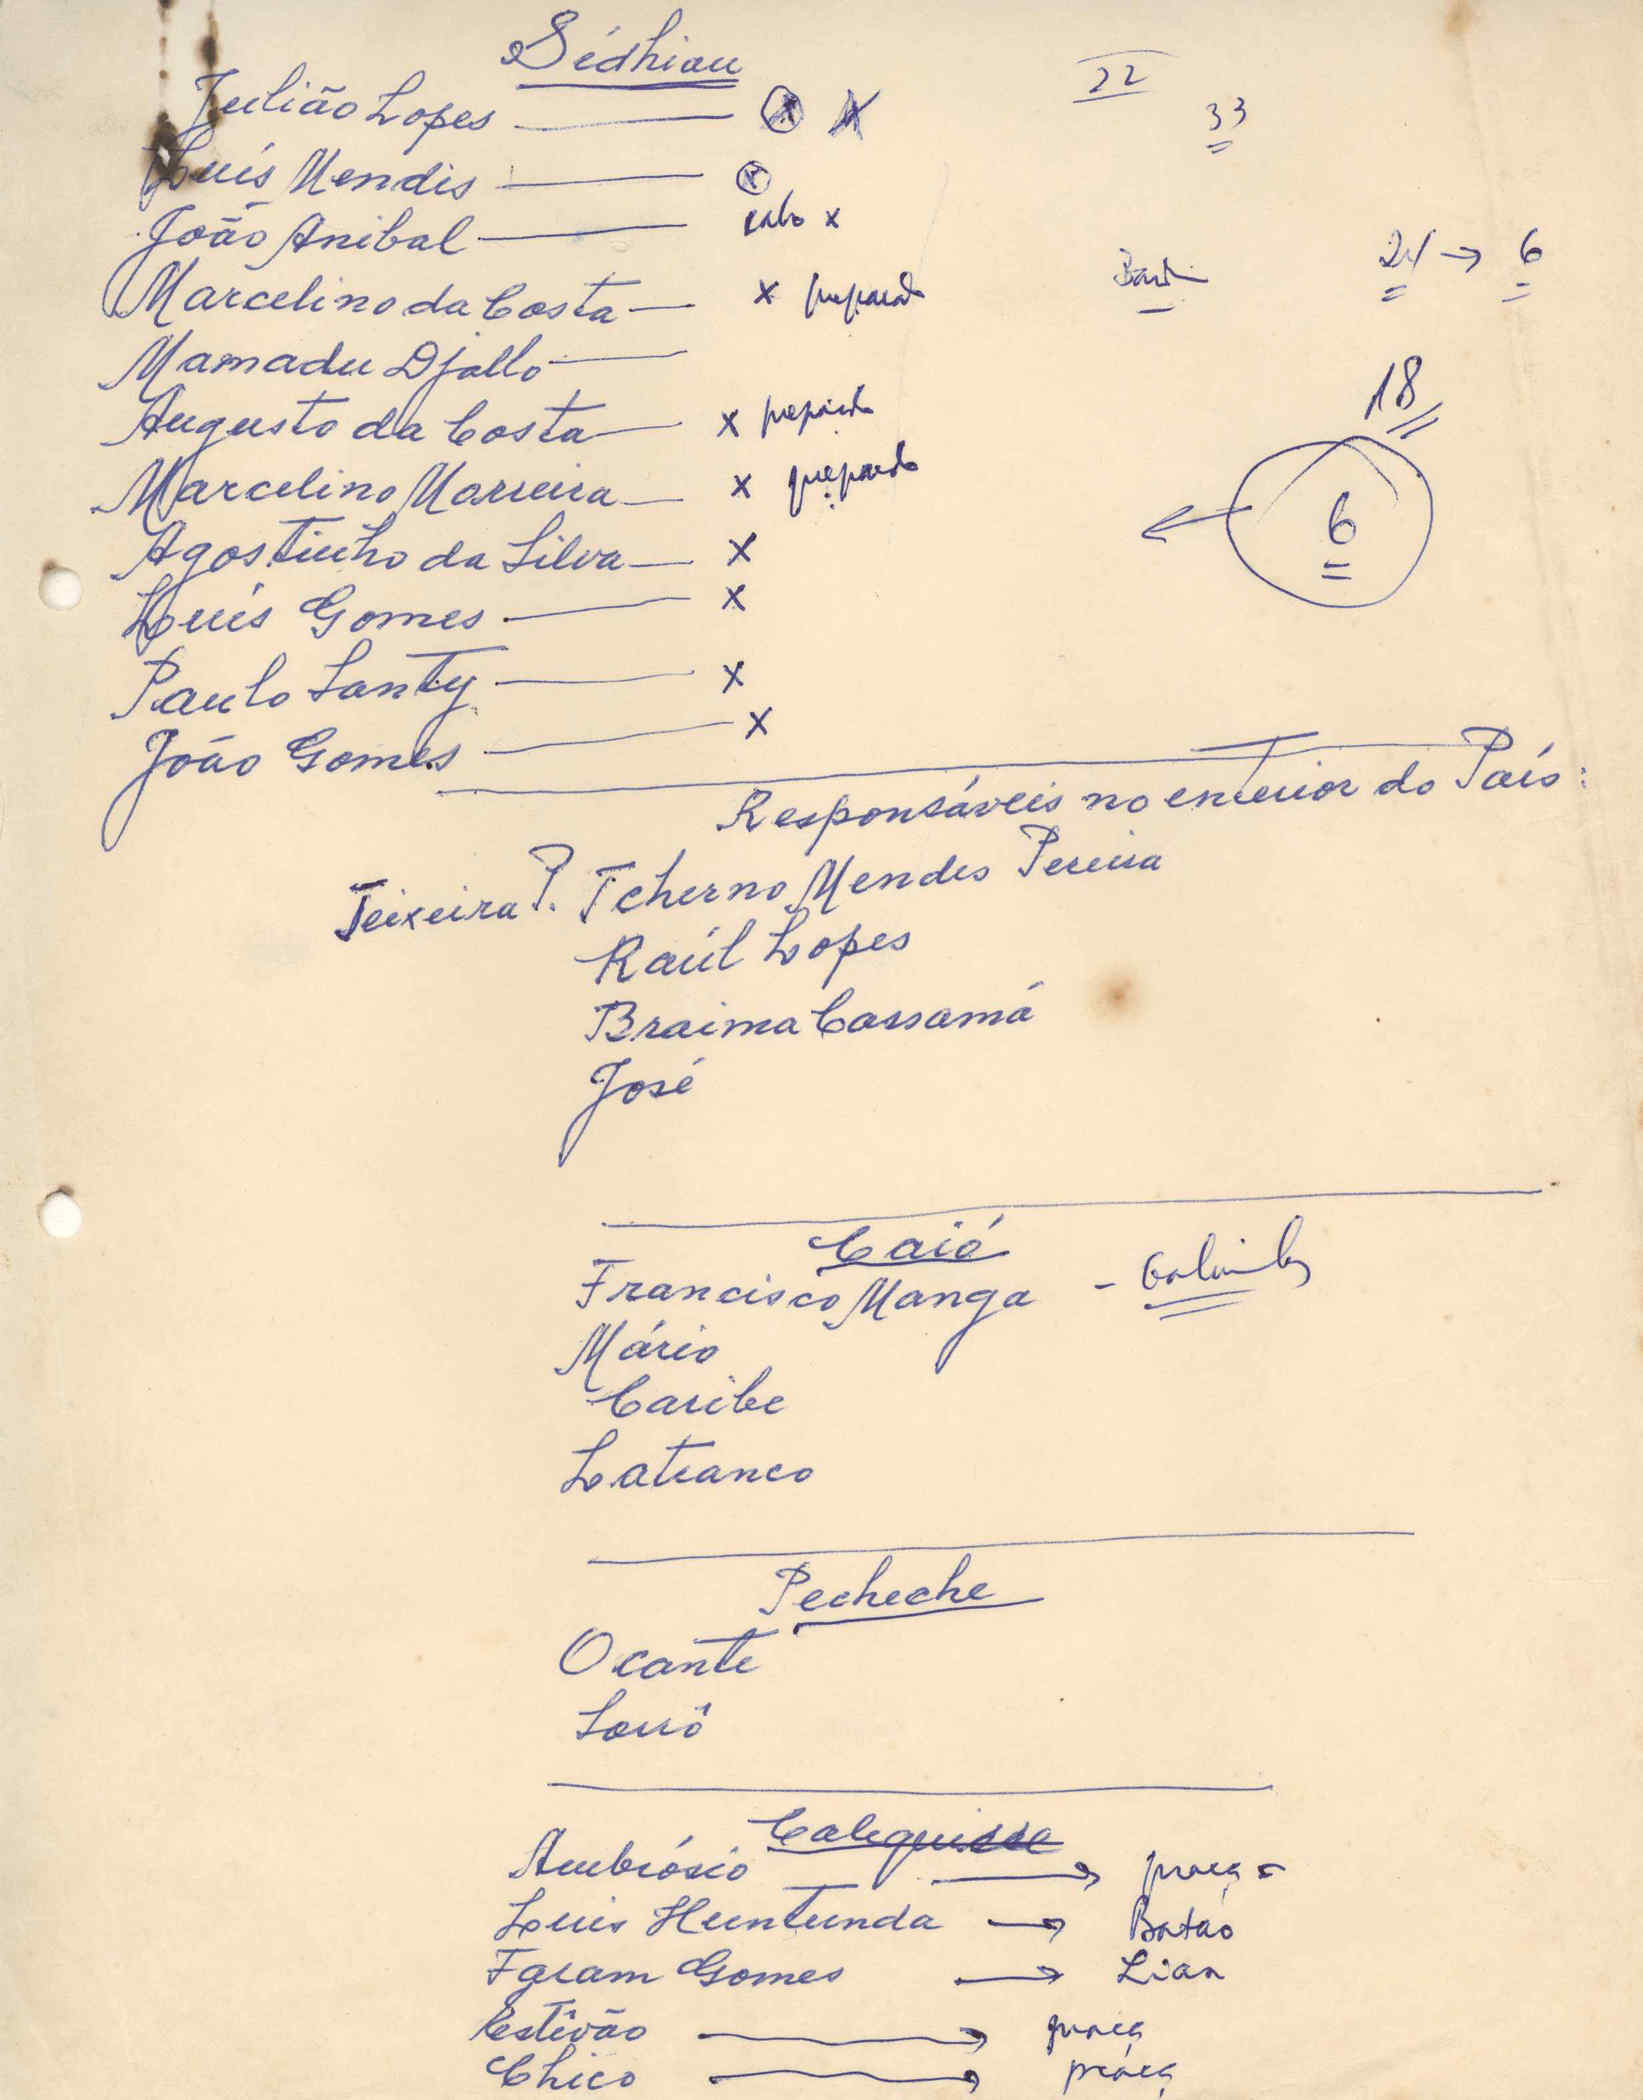 Sédhiou
22
Julião Lopes — x x
33
Luís Mendis — x
João Anibal — cabo x
21 → 6
Marcelino da Costa — x preparado
Mamadu Djalló —
18
Augusto da Costa — x preparado
Marcelino Marreira — x preparado
6
Agostinho da Silva — x
Luís Gomes — x
Paulo Santy — x
João Gomes — x
Responsáveis no enterior do País:
Teixeira P. Tcherno Mendes Pereira
Raúl Lopes
Braima Cassamá
José
Caió
Francisco Manga -
Mário
Caribe
Latranco
Pecheche
Ocante
Sorrô
Calequisse
Ambrósio → praça
Luis Huntunda → Batao
Faram Gomes → Lian
Estêvão → praça
Chico → praça